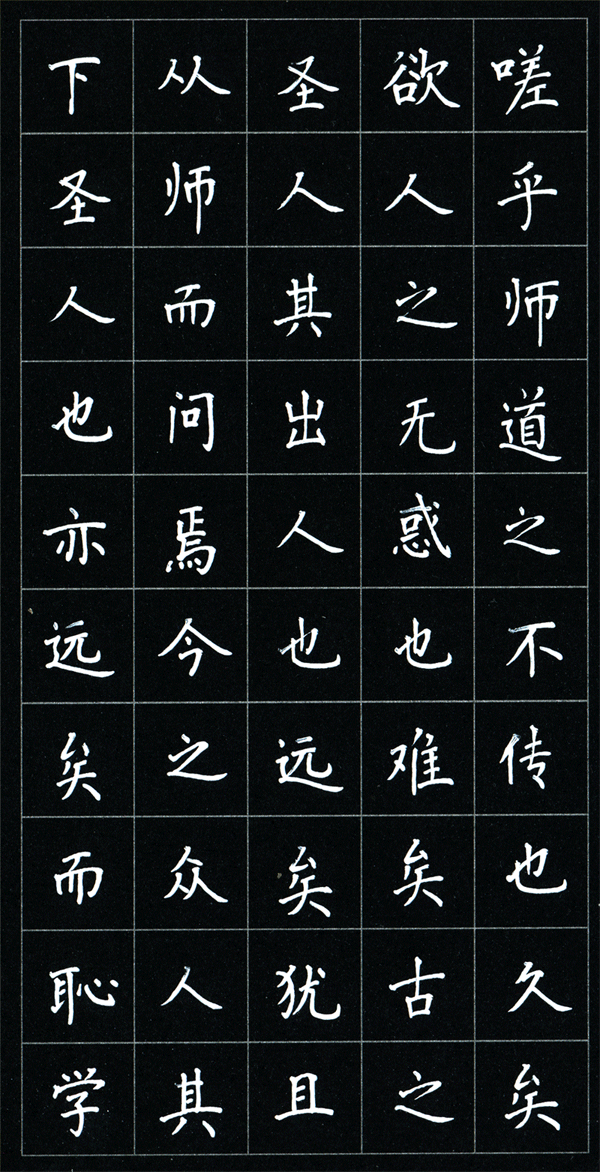 嗟乎师道之不传也久矣
欲人之无惑也难矣古之
圣人其出人也远矣犹且
从师而问焉今之众人其
下圣人也亦远矣而恥学